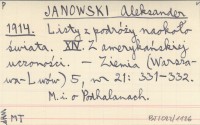 P JANOWSKI Aleksander
1914. Listy z podróży naokoło
świata. XIV. Z amerykańskiej
uczoności. - Ziemia (Warsza-
wa-Lwów) 5, nr 21: 331-332.
M.i. o Podhalanach.
MT